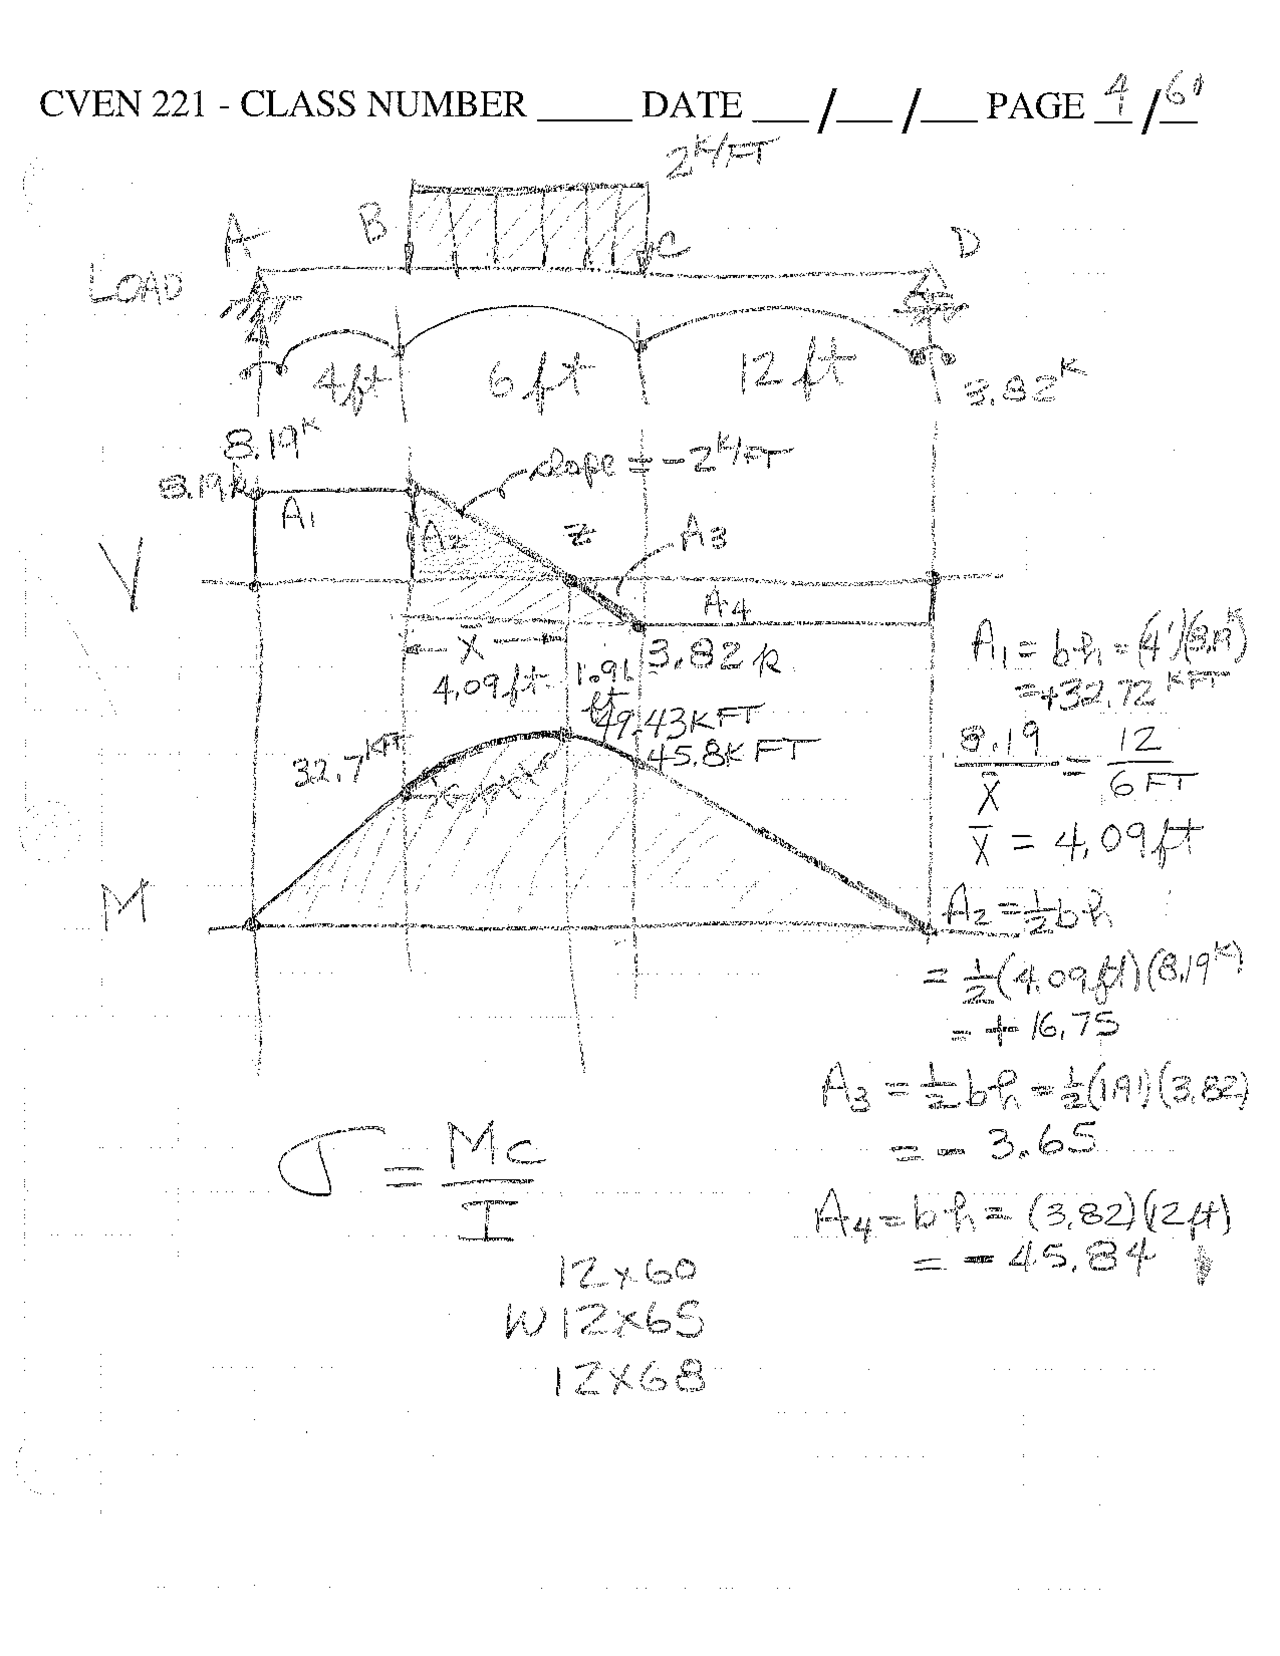 CVEN 221 - CLASS NUMBER _____ DATE ___ /___ /___ PAGE 4 /6
2 K/FT
A B C D
LOAD
4ft 6ft 12ft
3.82K
8.19K
8.19k
slope = -2K/FT
A1 A2 Z A3
V
A4
X̄
3.82k
4.09ft 1.91 ft
49.43KFT
32.7KFT
45.8KFT
M
A1 = bh = (4')(8.19K)
= +32.72 KFT
8.19 / X̄ = 12 / 6FT
X̄ = 4.09ft
A2 = 1/2 bh
= 1/2 (4.09ft)(8.19K)
= + 16.75
A3 = 1/2 bh = 1/2 (1.91)(3.82)
= - 3.65
A4 = bh = (3.82)(12ft)
= - 45.84
σ = Mc / I
12x60
W12x65
12x68